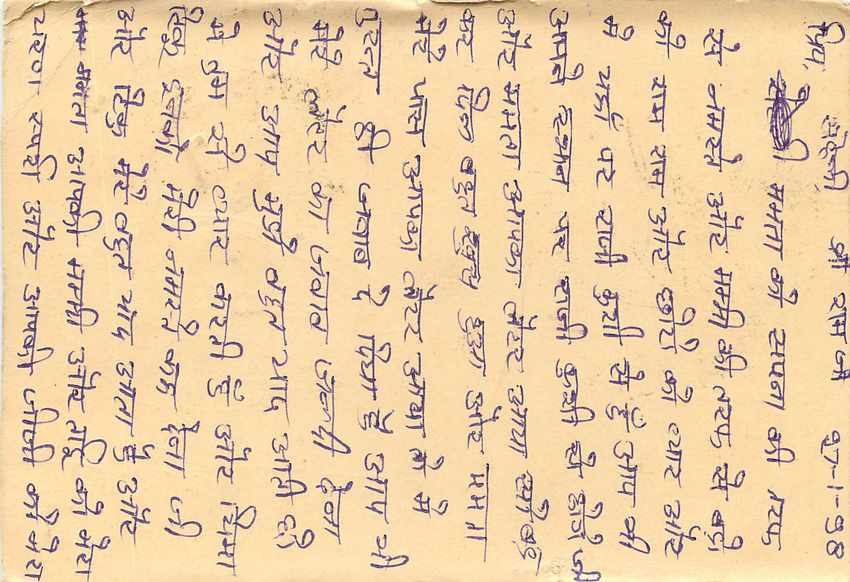 प्रिय, सहेली, श्री राम जी 97-1-98
ममता को सपना की तरफ
से नमस्ते और मम्मी की तरफ से बड़ो
को राम राम और छोटो को प्यार और
मै यहाँ पर राजी कुशी से हूँ आप भी
अपने स्थान पर राजी कुशी से होगे जी
और ममता आपका लेटर आया सो पढ़
कर दिल बहुत खुश हुआ और ममता
मेरे पास आपका लेटर आया मै ने
तुरन्त ही जवाब दे दिया है आप भी
मेरे लेटर का जवाब जल्दी देना
और आप मुझे बहुत याद आती हो
मै तुम से प्यार करती हूँ और सिमा
रिंकु इनको मेरी नमस्ते कह देना जी
और रिंकु मेरे बहुत याद आता है और
ममता आपकी मम्मी और को मेरा
चरण स्पर्श और आपकी जीजी को मेरा